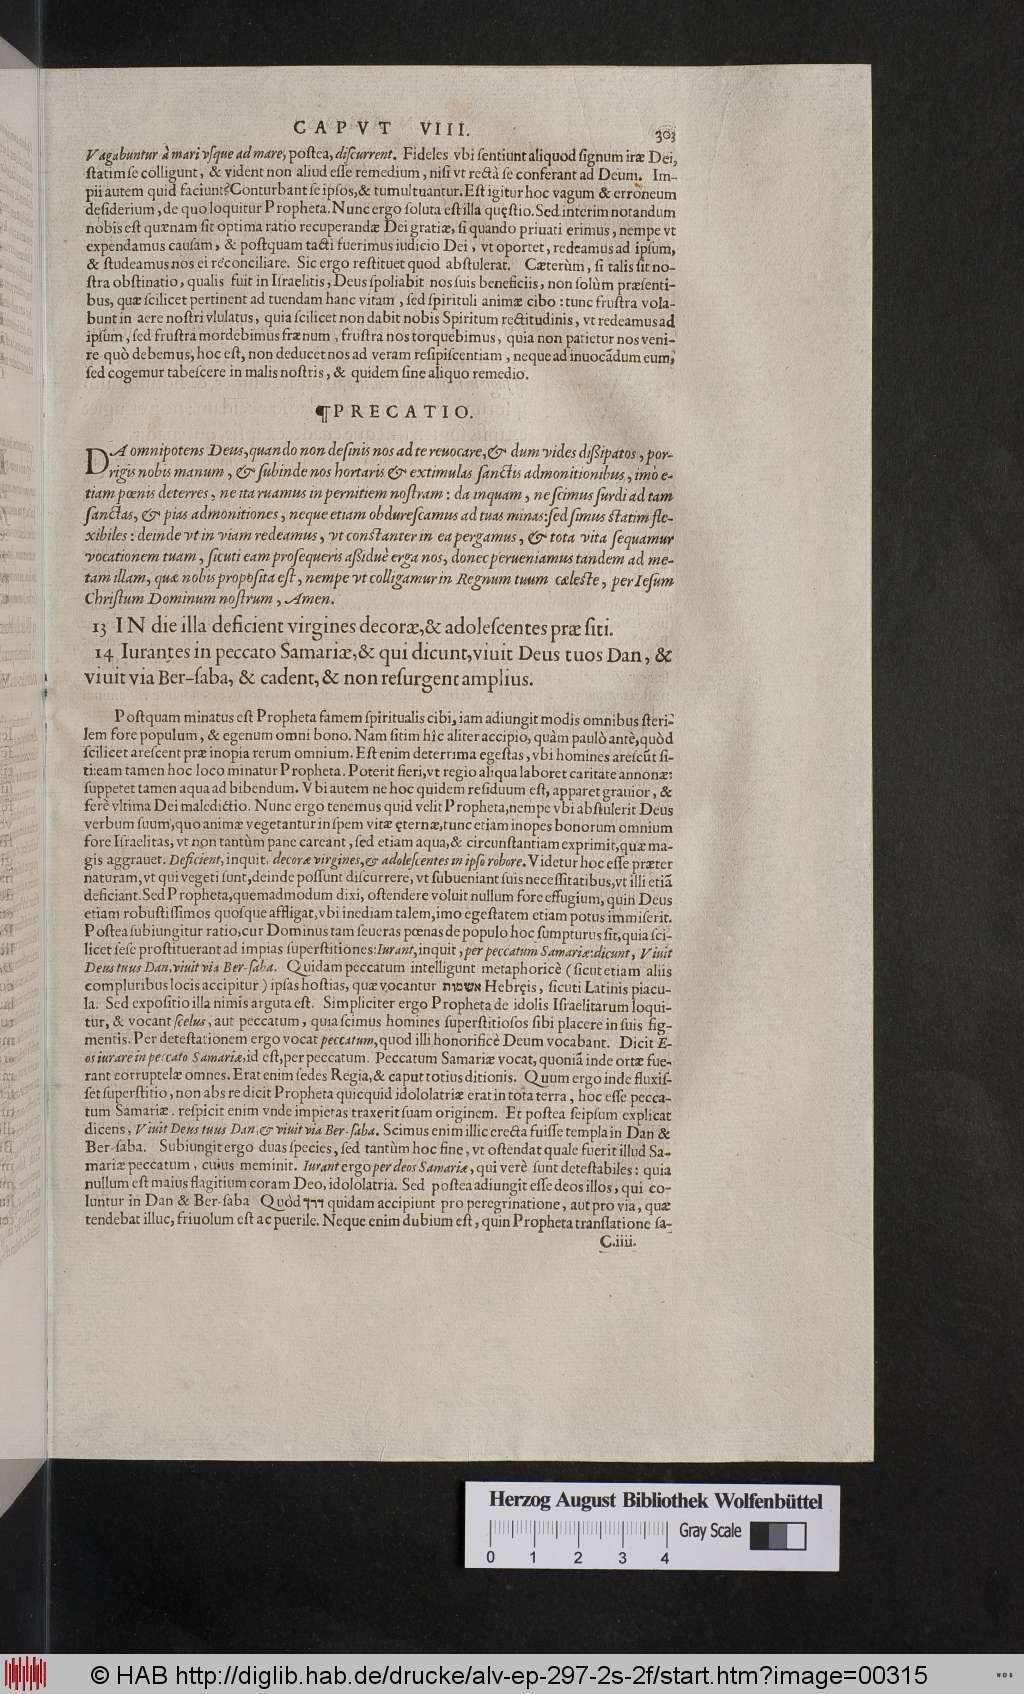 CAPVT VIII. 303
Vagabuntur à mari vſque ad mare, poſtea, diſcurrent. Fideles vbi ſentiunt aliquod ſignum iræ Dei,
ſtatim ſe colligunt, & vident non aliud eſſe remedium, niſi vt rectà ſe conferant ad Deum. Im-
pii autem quid faciunt? Conturbant ſe ipſos, & tumultuantur. Eſt igitur hoc vagum & erroneum
deſiderium, de quo loquitur Propheta. Nunc ergo ſoluta eſt illa quęſtio. Sed interim notandum
nobis eſt quænam ſit optima ratio recuperandæ Dei gratiæ, ſi quando priuati erimus, nempe vt
expendamus cauſam, & poſtquam tacti fuerimus iudicio Dei, vt oportet, redeamus ad ipſum,
& ſtudeamus nos ei reconciliare. Sic ergo reſtituet quod abſtulerat. Cæterùm, ſi talis ſit no-
ſtra obſtinatio, qualis fuit in Iſraelitis, Deus ſpoliabit nos ſuis beneficiis, non ſolùm præſenti-
bus, quæ ſcilicet pertinent ad tuendam hanc vitam, ſed ſpirituli animæ cibo: tunc fruſtra vola-
bunt in aere noſtri vlulatus, quia ſcilicet non dabit nobis Spiritum rectitudinis, vt redeamus ad
ipſum, ſed fruſtra mordebimus frænum, fruſtra nos torquebimus, quia non patietur nos veni-
re quò debemus, hoc eſt, non deducet nos ad veram reſipiſcentiam, neque ad inuocãdum eum,
ſed cogemur tabeſcere in malis noſtris, & quidem ſine aliquo remedio.
¶PRECATIO.
DA omnipotens Deus, quando non deſinis nos ad te reuocare, & dum vides diſſipatos, por-
rigis nobis manum, & ſubinde nos hortaris & extimulas ſanctis admonitionibus, imò e-
tiam pœnis deterres, ne ita ruamus in pernitiem noſtram: da inquam, ne ſcimus ſurdi ad tam
ſanctas, & pias admonitiones, neque etiam obdureſcamus ad tuas minas: ſed ſimus ſtatim fle-
xibiles: deinde vt in viam redeamus, vt conſtanter in ea pergamus, & tota vita ſequamur
vocationem tuam, ſicuti eam proſequeris aſſiduè erga nos, donec perueniamus tandem ad me-
tam illam, quæ nobis propoſita eſt, nempe vt colligamur in Regnum tuum cæleſte, per Ieſum
Chriſtum Dominum noſtrum, Amen.
13 IN die illa deficient virgines decoræ, & adoleſcentes præ ſiti.
14 Iurantes in peccato Samariæ, & qui dicunt, viuit Deus tuos Dan, &
viuit via Ber-ſaba, & cadent, & non reſurgent amplius.
Poſtquam minatus eſt Propheta famem ſpiritualis cibi, iam adiungit modis omnibus ſteri-
lem fore populum, & egenum omni bono. Nam ſitim hîc aliter accipio, quàm paulò antè, quòd
ſcilicet areſcent præ inopia rerum omnium. Eſt enim deterrima egeſtas, vbi homines areſcũt ſi-
ti: eam tamen hoc loco minatur Propheta. Poterit fieri, vt regio aliqua laboret caritate annonæ:
ſuppetet tamen aqua ad bibendum. Vbi autem ne hoc quidem reſiduum eſt, apparet grauior, &
ferè vltima Dei maledictio. Nunc ergo tenemus quid velit Propheta, nempe vbi abſtulerit Deus
verbum ſuum, quo animæ vegetantur in ſpem vitæ ęternæ, tunc etiam inopes bonorum omnium
fore Iſraelitas, vt non tantùm pane careant, ſed etiam aqua, & circunſtantiam exprimit, quæ ma-
gis aggrauet. Deficient, inquit, decoræ virgines, & adoleſcentes in ipſo robore. Videtur hoc eſſe præter
naturam, vt qui vegeti ſunt, deinde poſſunt diſcurrere, vt ſubueniant ſuis neceſſitatibus, vt illi etiã
deficiant. Sed Propheta, quemadmodum dixi, oſtendere voluit nullum fore effugium, quin Deus
etiam robuſtiſſimos quoſque affligat, vbi inediam talem, imo egeſtatem etiam potus immiſerit.
Poſtea ſubiungitur ratio, cur Dominus tam ſeueras pœnas de populo hoc ſumpturus ſit, quia ſci-
licet ſeſe proſtituerant ad impias ſuperſtitiones: Iurant, inquit, per peccatum Samariæ: dicunt, Viuit
Deus tuus Dan, viuit via Ber-ſaba. Quidam peccatum intelligunt metaphoricè (ſicut etiam aliis
compluribus locis accipitur) ipſas hoſtias, quæ vocantur אשמות Hebręis, ſicuti Latinis piacu-
la. Sed expoſitio illa nimis arguta eſt. Simpliciter ergo Propheta de idolis Iſraelitarum loqui-
tur, & vocant ſcelus, aut peccatum, quia ſcimus homines ſuperſtitioſos ſibi placere in ſuis fig-
mentis. Per deteſtationem ergo vocat peccatum, quod illi honorificè Deum vocabant. Dicit E-
os iurare in peccato Samariæ, id eſt, per peccatum. Peccatum Samariæ vocat, quoniã inde ortæ fue-
rant corruptelæ omnes. Erat enim ſedes Regia, & caput totius ditionis. Quum ergo inde fluxiſ-
ſet ſuperſtitio, non abs re dicit Propheta quicquid idololatriæ erat in tota terra, hoc eſſe pecca-
tum Samariæ. reſpicit enim vnde impietas traxerit ſuam originem. Et poſtea ſeipſum explicat
dicens, Viuit Deus tuus Dan, & viuit via Ber-ſaba. Scimus enim illic erecta fuiſſe templa in Dan &
Ber-ſaba. Subiungit ergo duas ſpecies, ſed tantùm hoc fine, vt oſtendat quale fuerit illud Sa-
mariæ peccatum, cuius meminit. Iurant ergo per deos Samariæ, qui verè ſunt deteſtabiles: quia
nullum eſt maius flagitium coram Deo, idololatria. Sed poſtea adiungit eſſe deos illos, qui co-
luntur in Dan & Ber-ſaba Quòd דרך quidam accipiunt pro peregrinatione, aut pro via, quæ
tendebat illuc, friuolum eſt ac puerile. Neque enim dubium eſt, quin Propheta tranſlatione ſa-
C.iiii.
Herzog August Bibliothek Wolfenbüttel
Gray Scale
0 1 2 3 4
© HAB http://diglib.hab.de/drucke/alv-ep-297-2s-2f/start.htm?image=00315